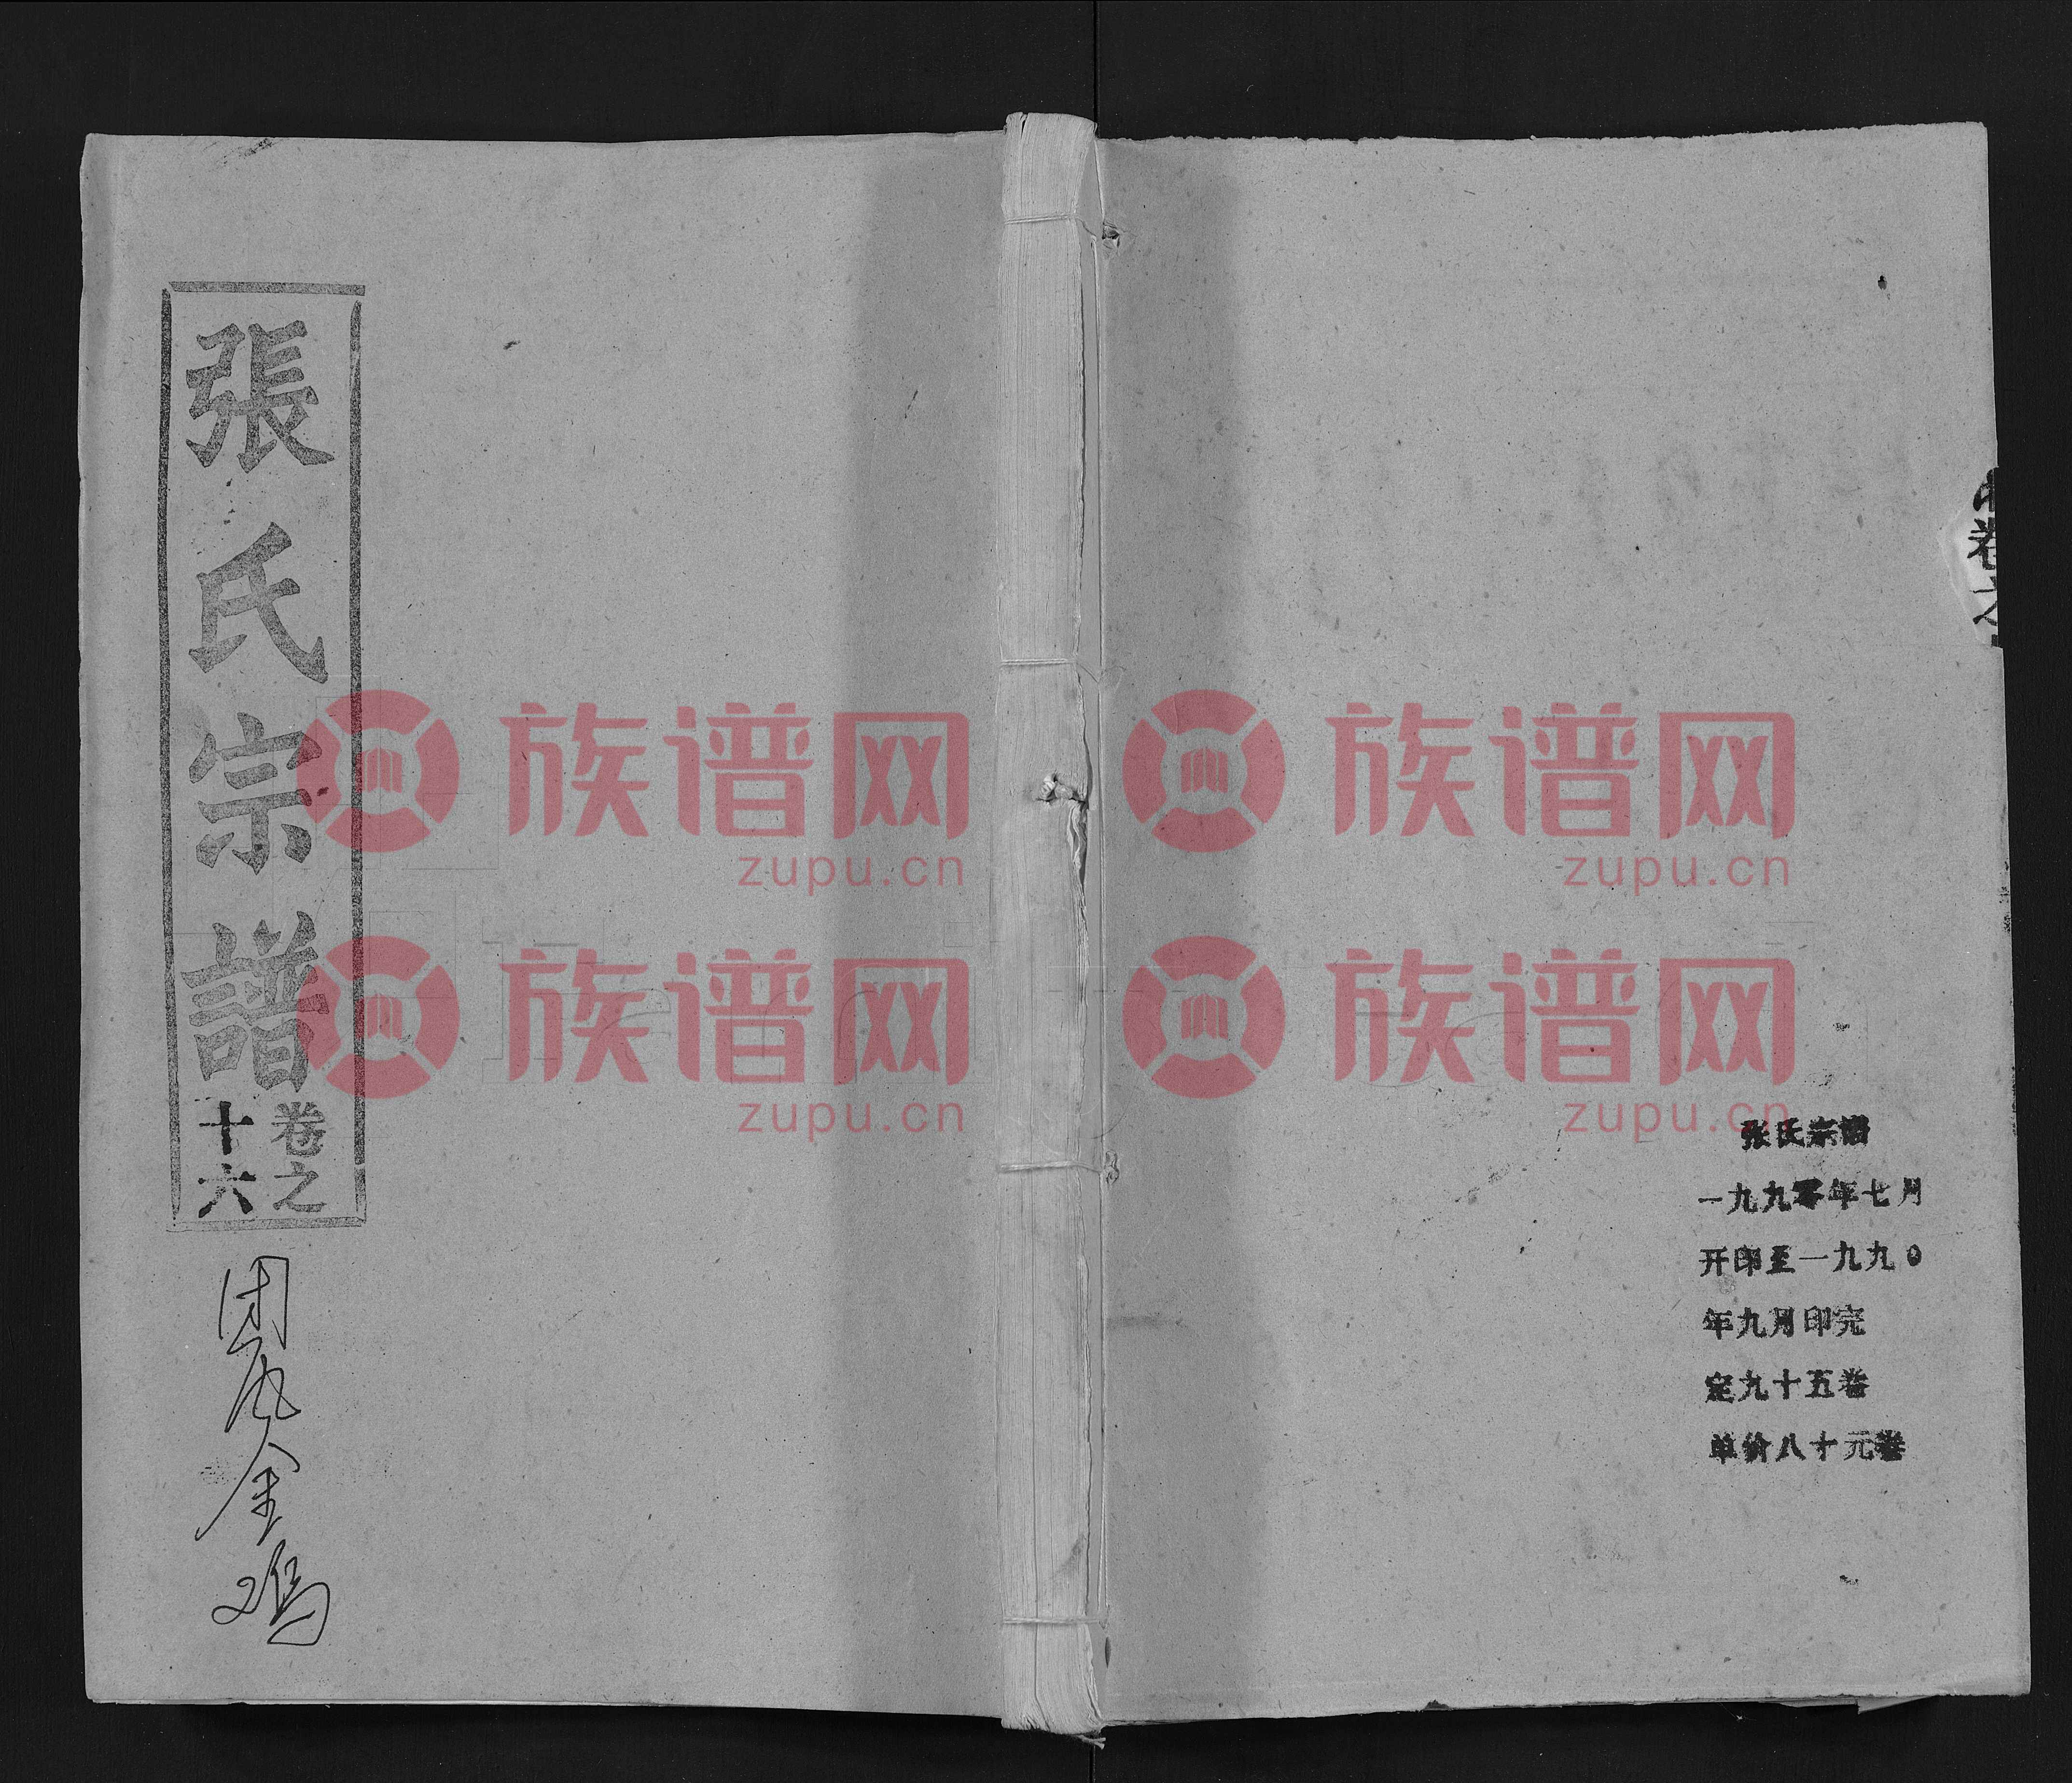 張氏宗譜
卷之
十六
周凤金鸡
族谱网
zupu.cn
族谱网
zupu.cn
族谱网
zupu.cn
族谱网
zupu.cn
张氏宗谱
一九九零年七月
开印至一九九0
年九月印完
定九十五卷
单价八十元卷